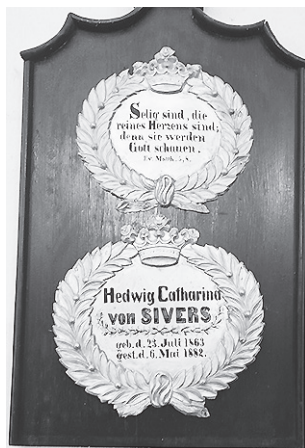 Selig sind, die
reines Herzens sind;
denn sie werden
Gott schauen.
Ev. Matth. 5, 8.
Hedwig Catharina
von SIVERS
geb. d. 23. Juli 1863
gest. d. 6. Mai 1882.